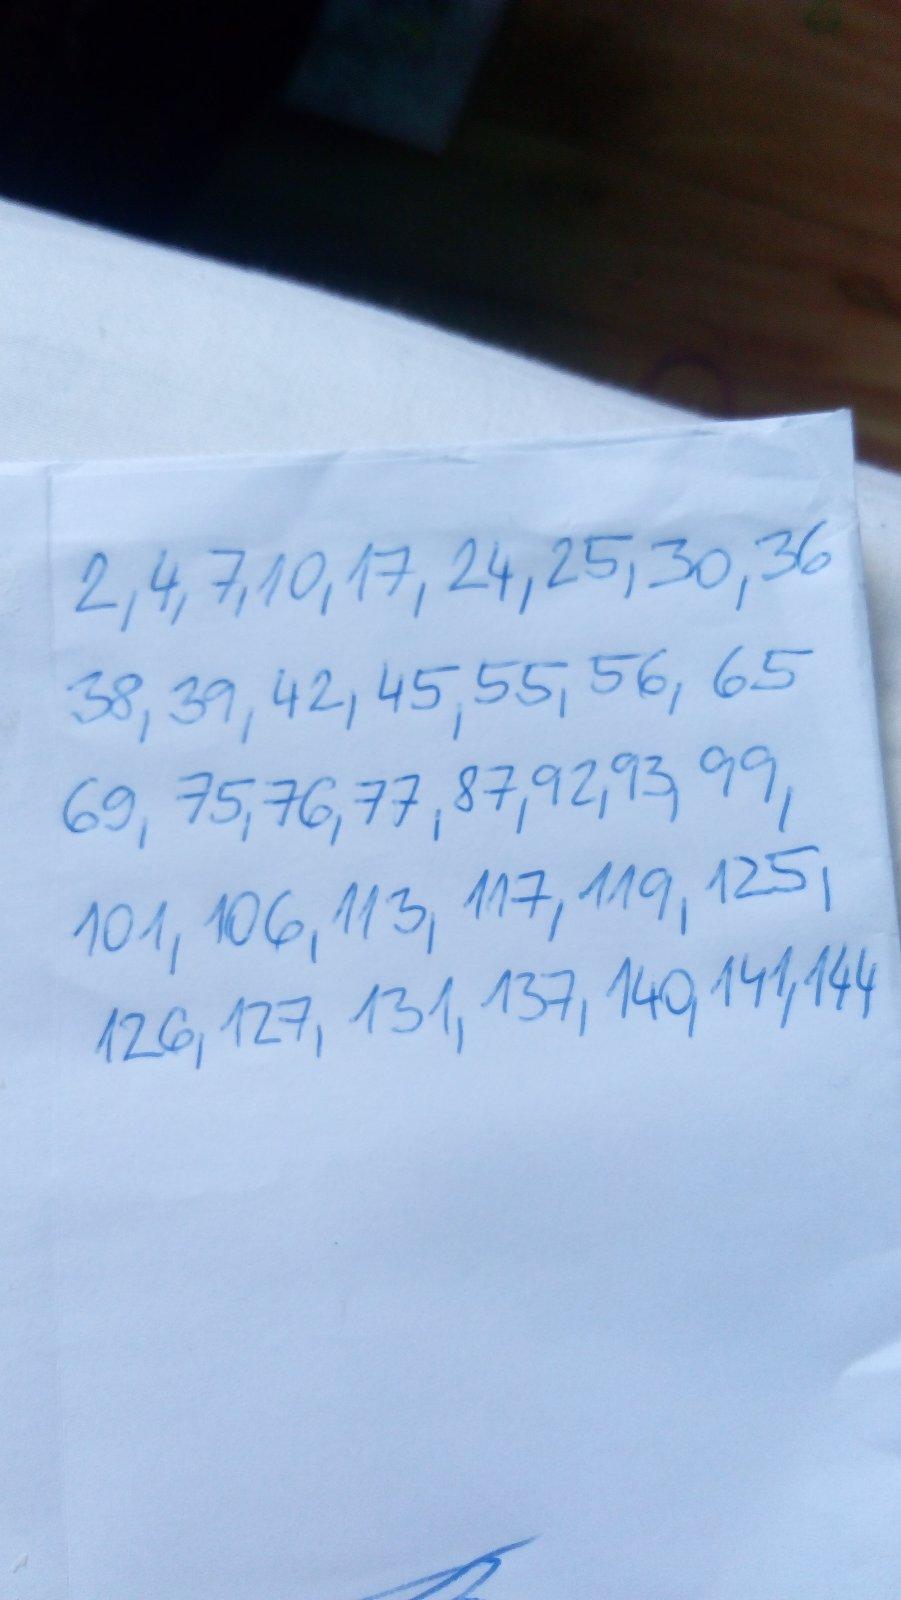 2, 4, 7, 10, 17, 24, 25, 30, 36
38, 39, 42, 45, 55, 56, 65
69, 75, 76, 77, 87, 92, 93, 99,
101, 106, 113, 117, 119, 125,
126, 127, 131, 137, 140, 141, 144